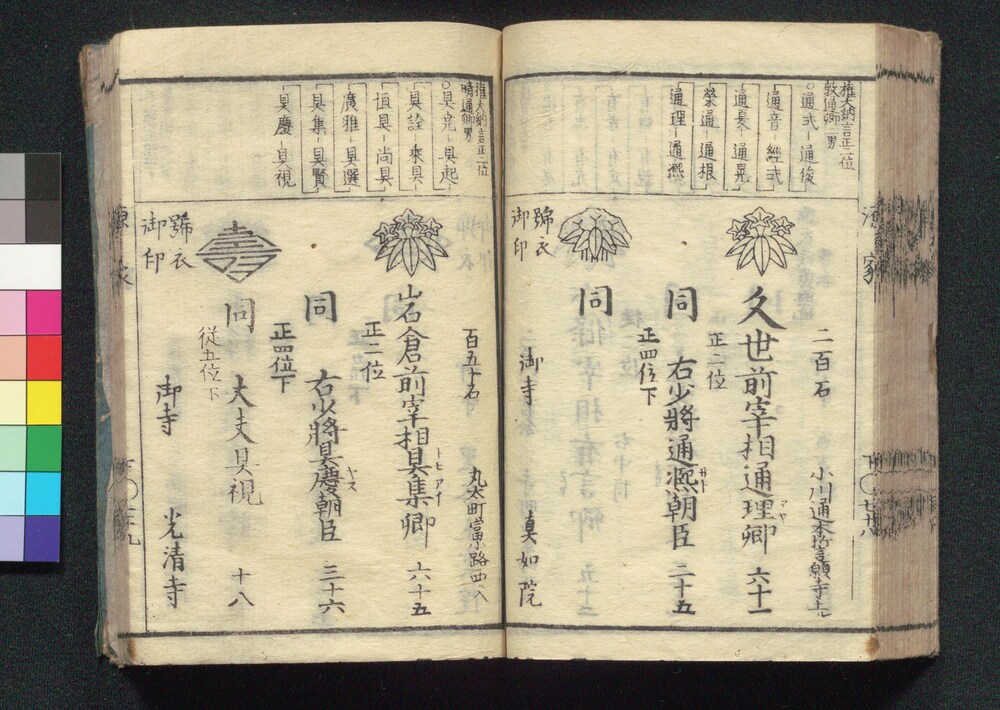 源家
権大納言正二位
敦通卿二男
○通式－通俊
通音－經式
通夏－通晃
榮通－通根
通理－通凞
二百石
小川通本誓願寺上
久世前宰相通理卿 六十一
正二位
同 右少將通凞朝臣 二十五
正四位下
同
號衣
御印
御寺 真如院
権大納言正二位
晴通卿男
○具尭－具起
具詮－乗具
恒具－尚具
廣雅－具選
具集－具賢
具慶－具視
百五十石
丸太町富小路西へ
岩倉前宰相具集卿 六十五
トモアイ
正二位
同 右少將具慶朝臣 三十六
ヤス
正四位下
同 大夫具視 十八
從五位下
號衣
御印
御寺 光清寺
源家